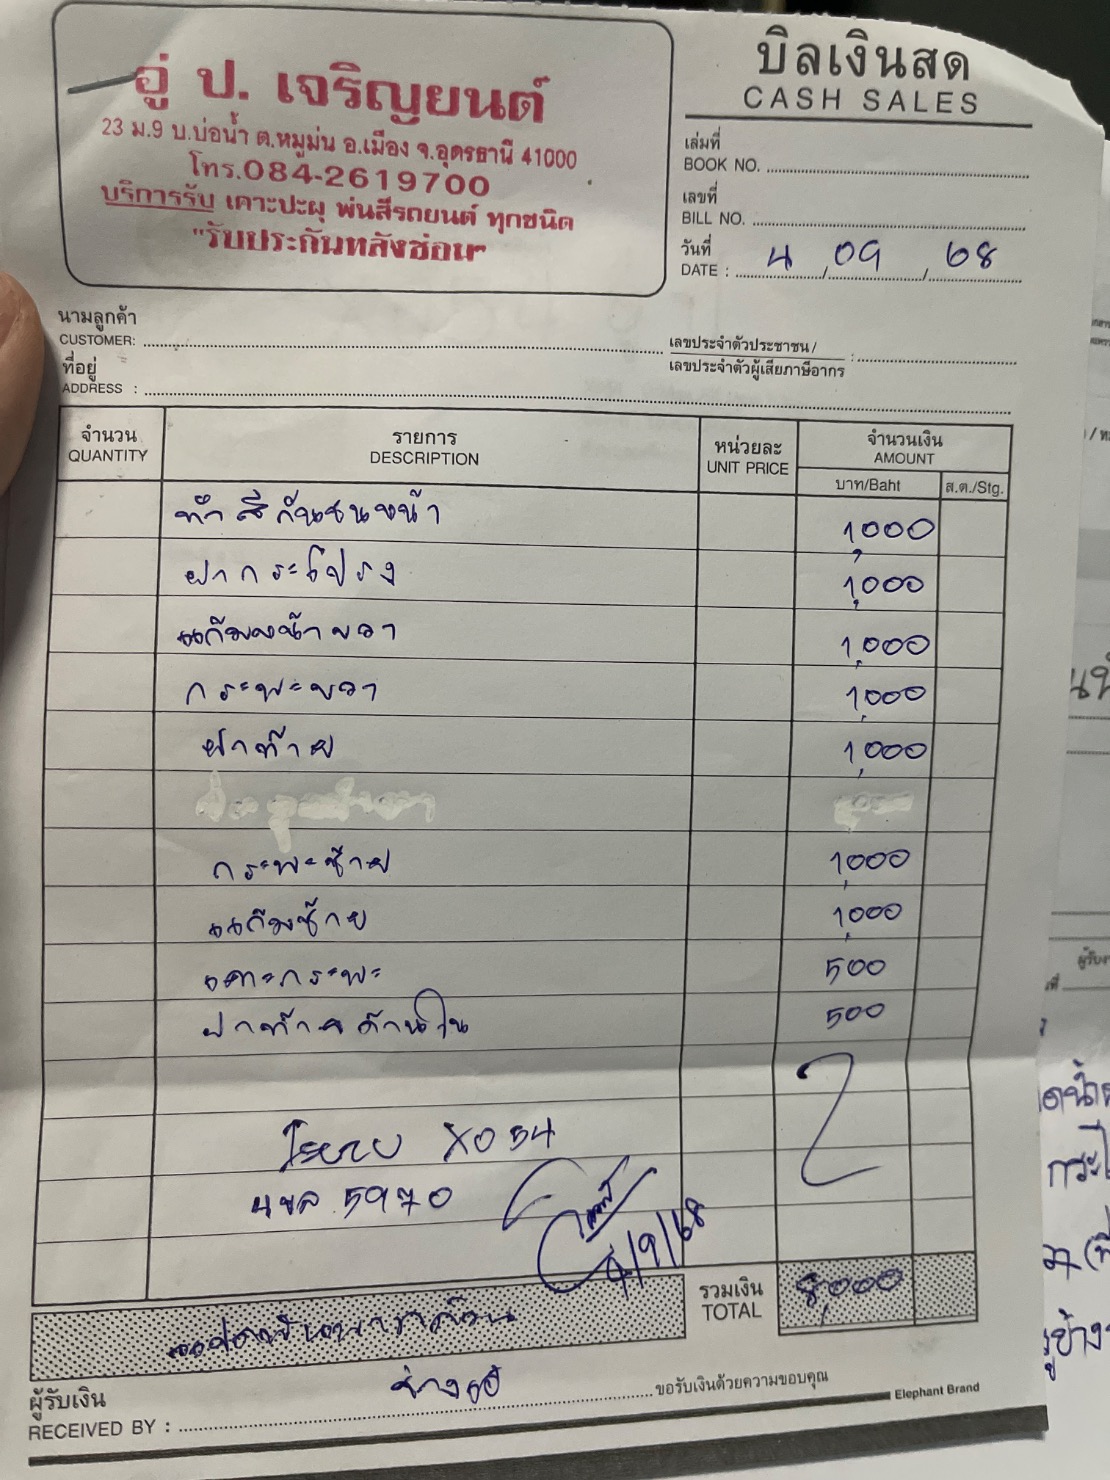 อู่ ป. เจริญยนต์
23 ม.9 บ.บ่อน้ำ ต.หมูม่น อ.เมือง จ.อุดรธานี 41000
โทร.084-2619700
บริการรับ เคาะปะผุ พ่นสีรถยนต์ ทุกชนิด
"รับประกันหลังซ่อม"
บิลเงินสด
CASH SALES
เล่มที่
BOOK NO.
เลขที่
BILL NO.
วันที่
DATE : 4 / 09 / 68
นามลูกค้า
CUSTOMER:
เลขประจำตัวประชาชน /
เลขประจำตัวผู้เสียภาษีอากร :
ที่อยู่
ADDRESS :
จำนวน รายการ หน่วยละ จำนวนเงิน
QUANTITY DESCRIPTION UNIT PRICE AMOUNT
บาท/Baht ส.ต./Stg.
ทำสีกันชนหน้า 1,000
ฝากระโปรง 1,000
แก้มหน้าขวา 1,000
กระพะขวา 1,000
ฝาท้าย 1,000
กระพะซ้าย 1,000
แก้มซ้าย 1,000
เคาะกระพะ 500
ฝาท้ายด้านใน 500
XO 54
5970
4/9/68
รวมเงิน
TOTAL 8,000
ผู้รับเงิน
RECEIVED BY :
ขอรับเงินด้วยความขอบคุณ
Elephant Brand